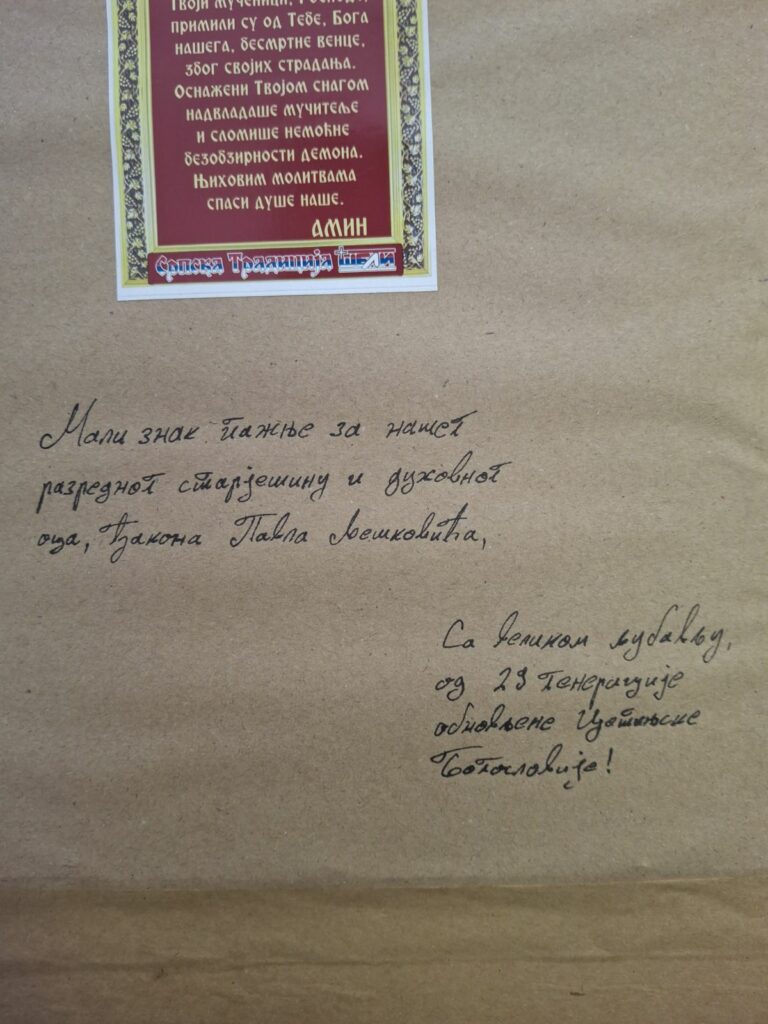 Твоји мученици, Господе,
примили су од Тебе, Бога
нашега, бесмртне венце,
због својих страдања.
Оснажени Твојом снагом
надвладаше мучитеље
и сломише немоћне
безобзирности демона.
Њиховим молитвама
спаси душе наше.
АМИН
Српска Традиција
Мали знак пажње за нашег
разредног старјешину и духовног
оца, ђакона Павла Љешковића,
Са великом љубављу,
од 29 генерације
обновљене Цетињске
Богословије!